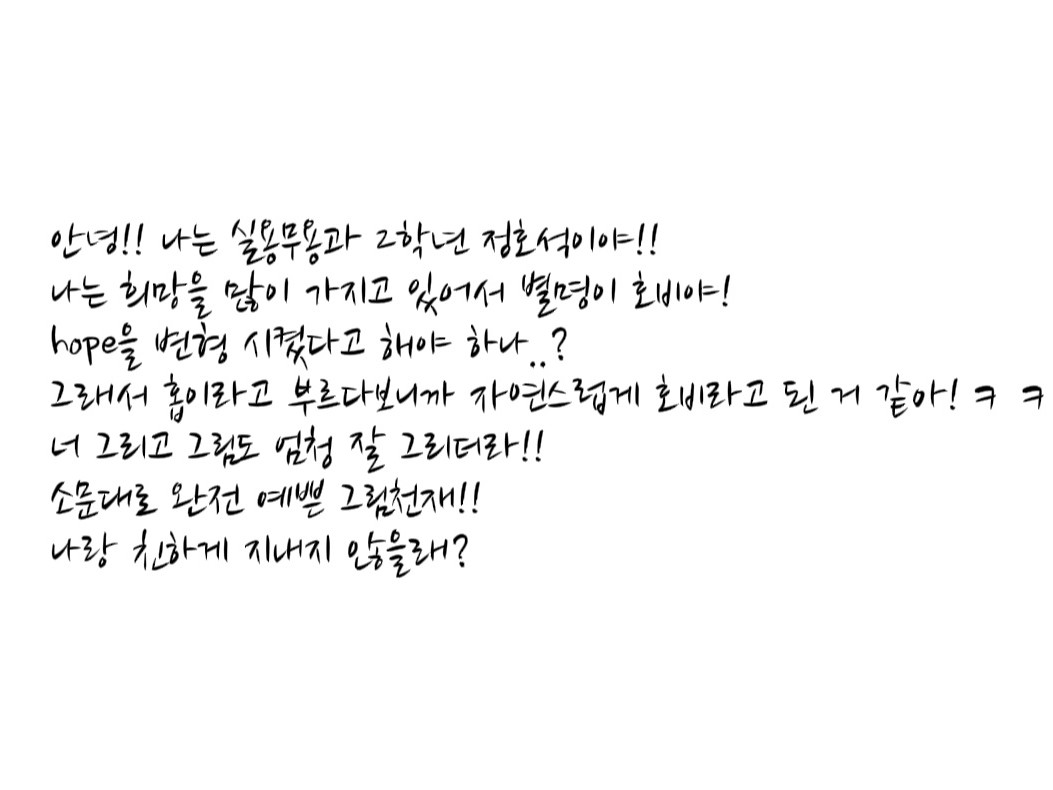 안녕!! 나는 실용무용과 2학년 정호석이야!!
나는 희망을 많이 가지고 있어서 별명이 호비야!
hope을 변형 시켰다고 해야 하나..?
그래서 홉이라고 부르다보니까 자연스럽게 호비라고 된 거 같아! ㅋ ㅋ
너 그리고 그림도 엄청 잘 그리더라!!
소문대로 완전 예쁜 그림천재!!
나랑 친하게 지내지 않을래?